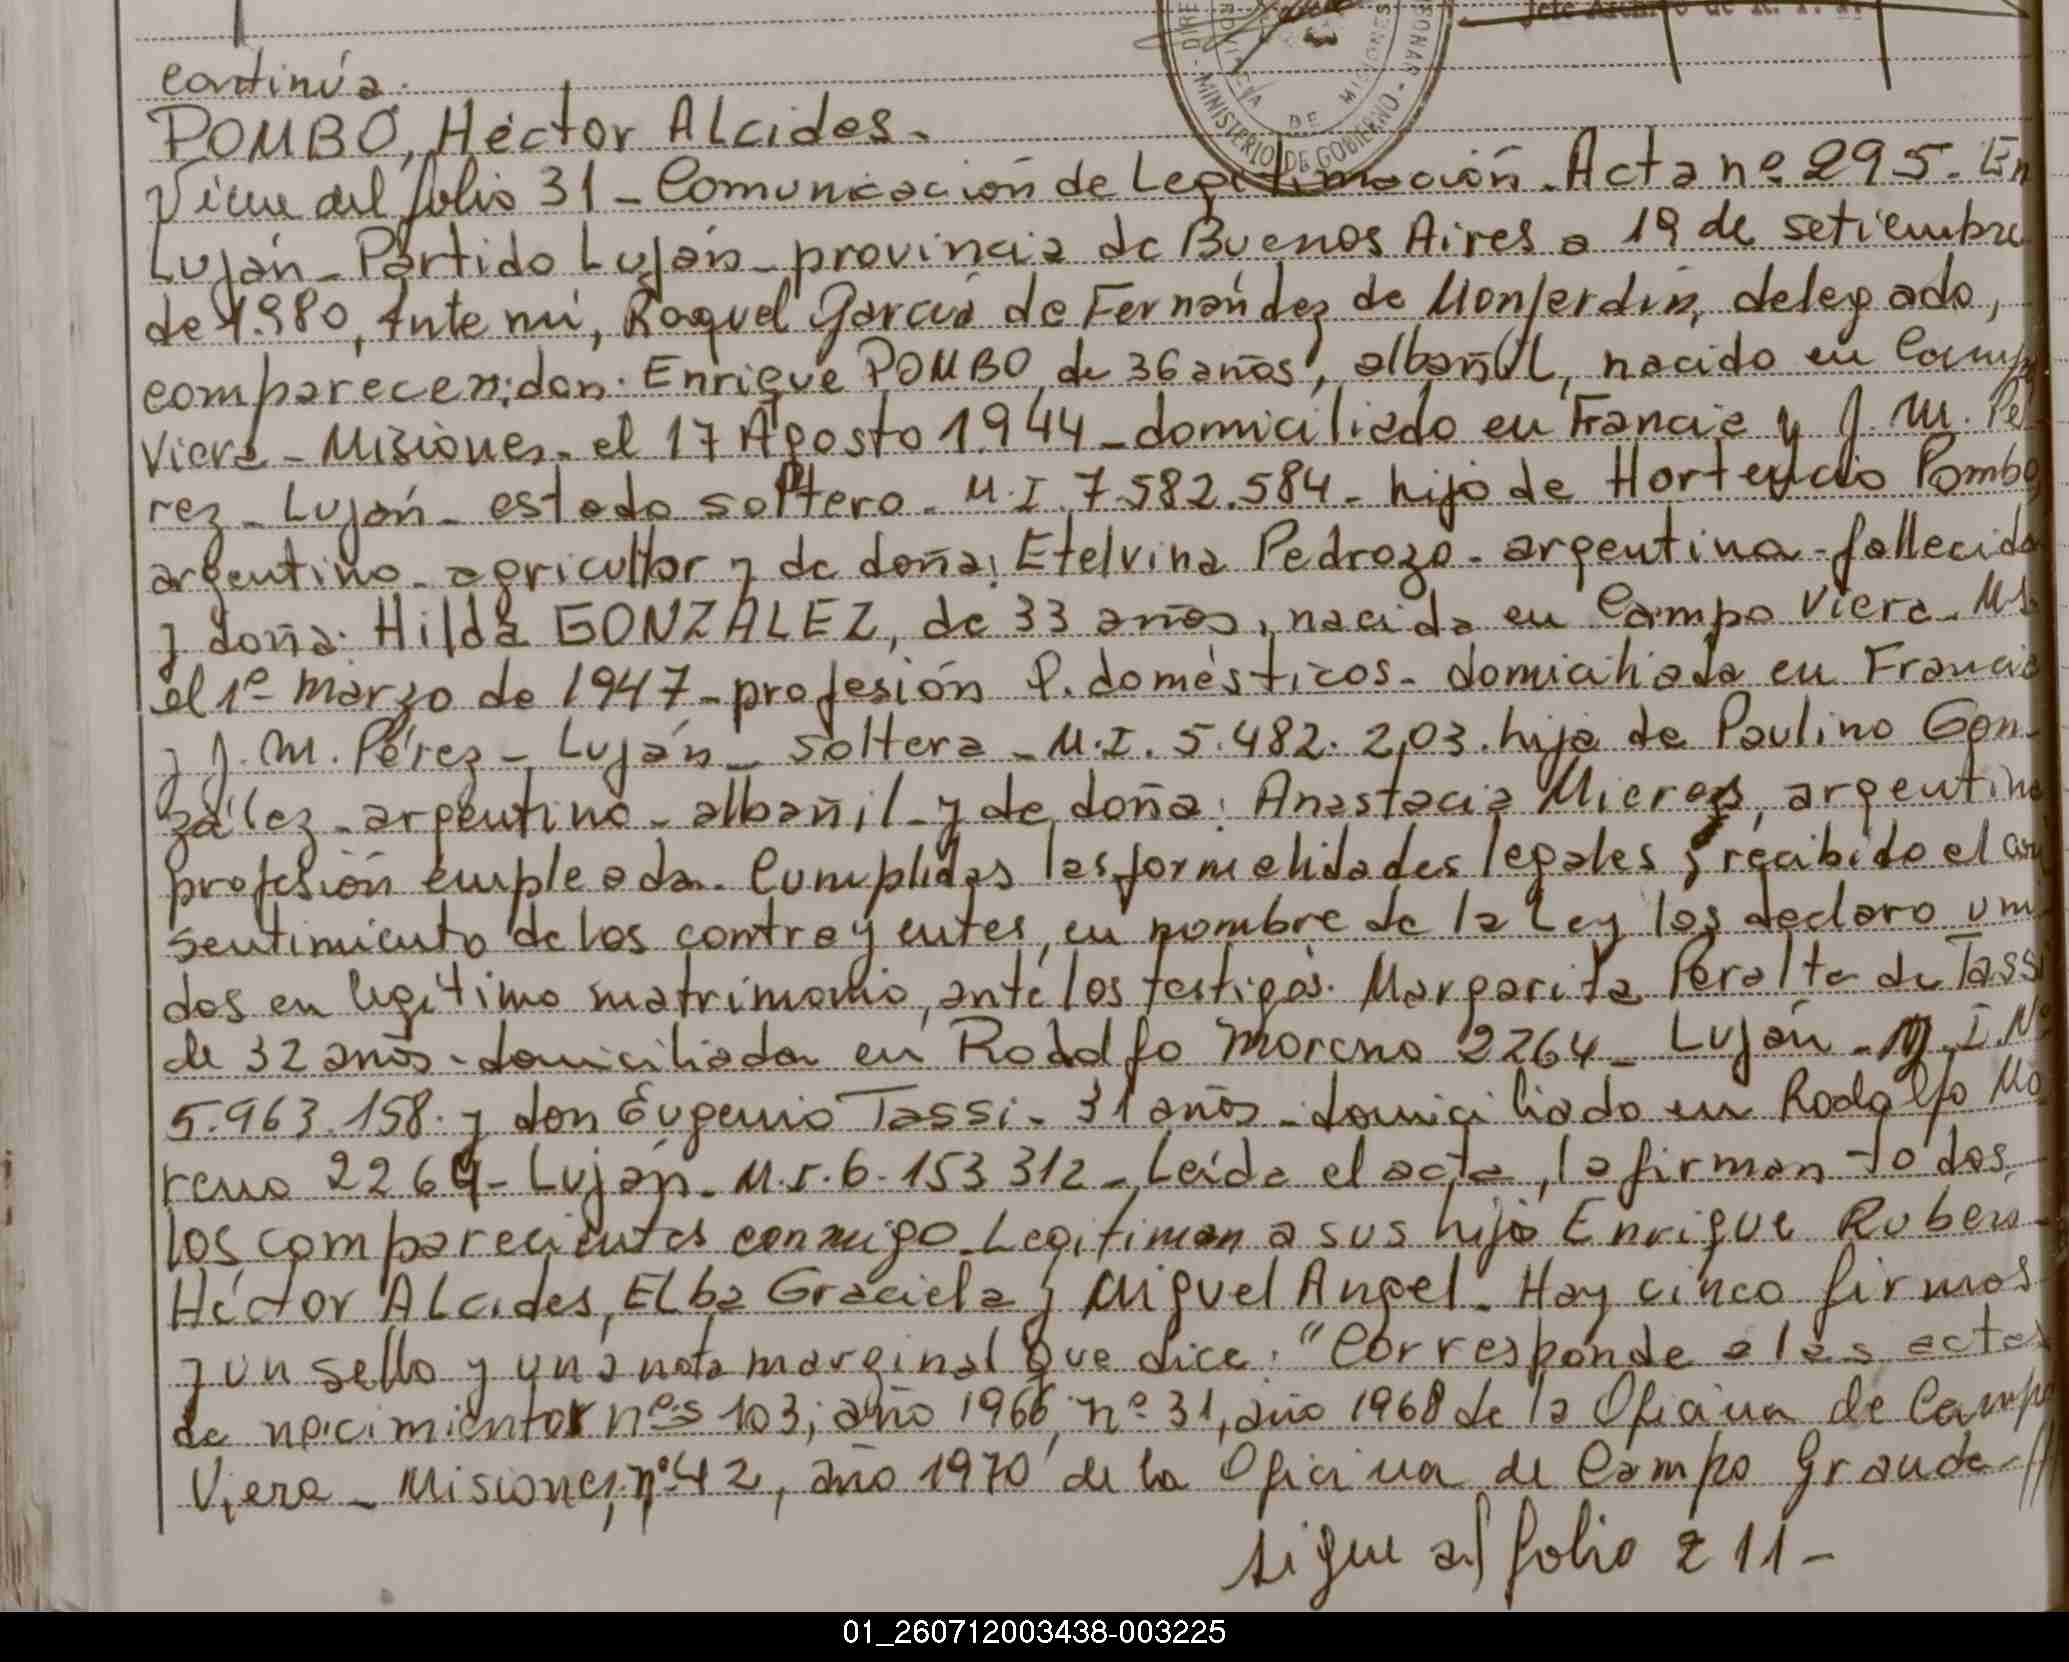 continúa.
POMBO, Héctor Alcides.
MINISTERIO DE GOBIERNO
DE MISIONES
Viene del folio 31 - Comunicación de Legitimación. Acta nº 295. En
Luján - Partido Luján - provincia de Buenos Aires a 19 de setiembre
de 1.980, Ante mí, Raquel García de Fernández de Monjerdín, delegado,
comparecen: don: Enrique POMBO, de 36 años, albañil, nacido en Campo
Viera - Misiones. el 17 Agosto 1.944 - domiciliado en Francia y J. M. Pé
rez - Luján - estado soltero - M.I. 7.582.584 - hijo de Hortencio Pombo
argentino - agricultor y de doña: Etelvina Pedrozo - argentina - fallecida
y doña: Hilda GONZALEZ, de 33 años, nacida en Campo Viera - Ms
el 1º marzo de 1947 - profesión Q. domésticos - domiciliada en Francia
y J. M. Pérez - Luján - soltera - M.I. 5.482.203. hija de Paulino Gon-
zález - argentino - albañil - y de doña: Anastacia Mieres, argentina
profesión empleada. Cumplidas las formalidades legales y recibido el con
sentimiento de los contrayentes, en nombre de la Ley los declaro uni
dos en legítimo matrimonio, ante los testigos: Margarita Peralta de Tassi
de 32 años - domiciliada en Rodolfo Moreno 2264 - Luján - M.I. Nº
5.963.158. y don Eugenio Tassi - 31 años - domiciliado en Rodolfo Mo
reno 2264 - Luján - M.I. 6.153.312 - Leída el acta, la firman todos
los comparecientes conmigo. Legitiman a sus hijos Enrique Rubén -
Héctor Alcides, Elba Graciela y Miguel Angel. Hay cinco firmas
y un sello y una nota marginal que dice: "Corresponde a las actas
de nacimientos nºs 103, año 1966, nº 31, año 1968 de la Oficina de Campo
Viera - Misiones, nº 42, año 1970 de la Oficina de Campo Grande - //
sigue al folio 211 -
01_260712003438-003225